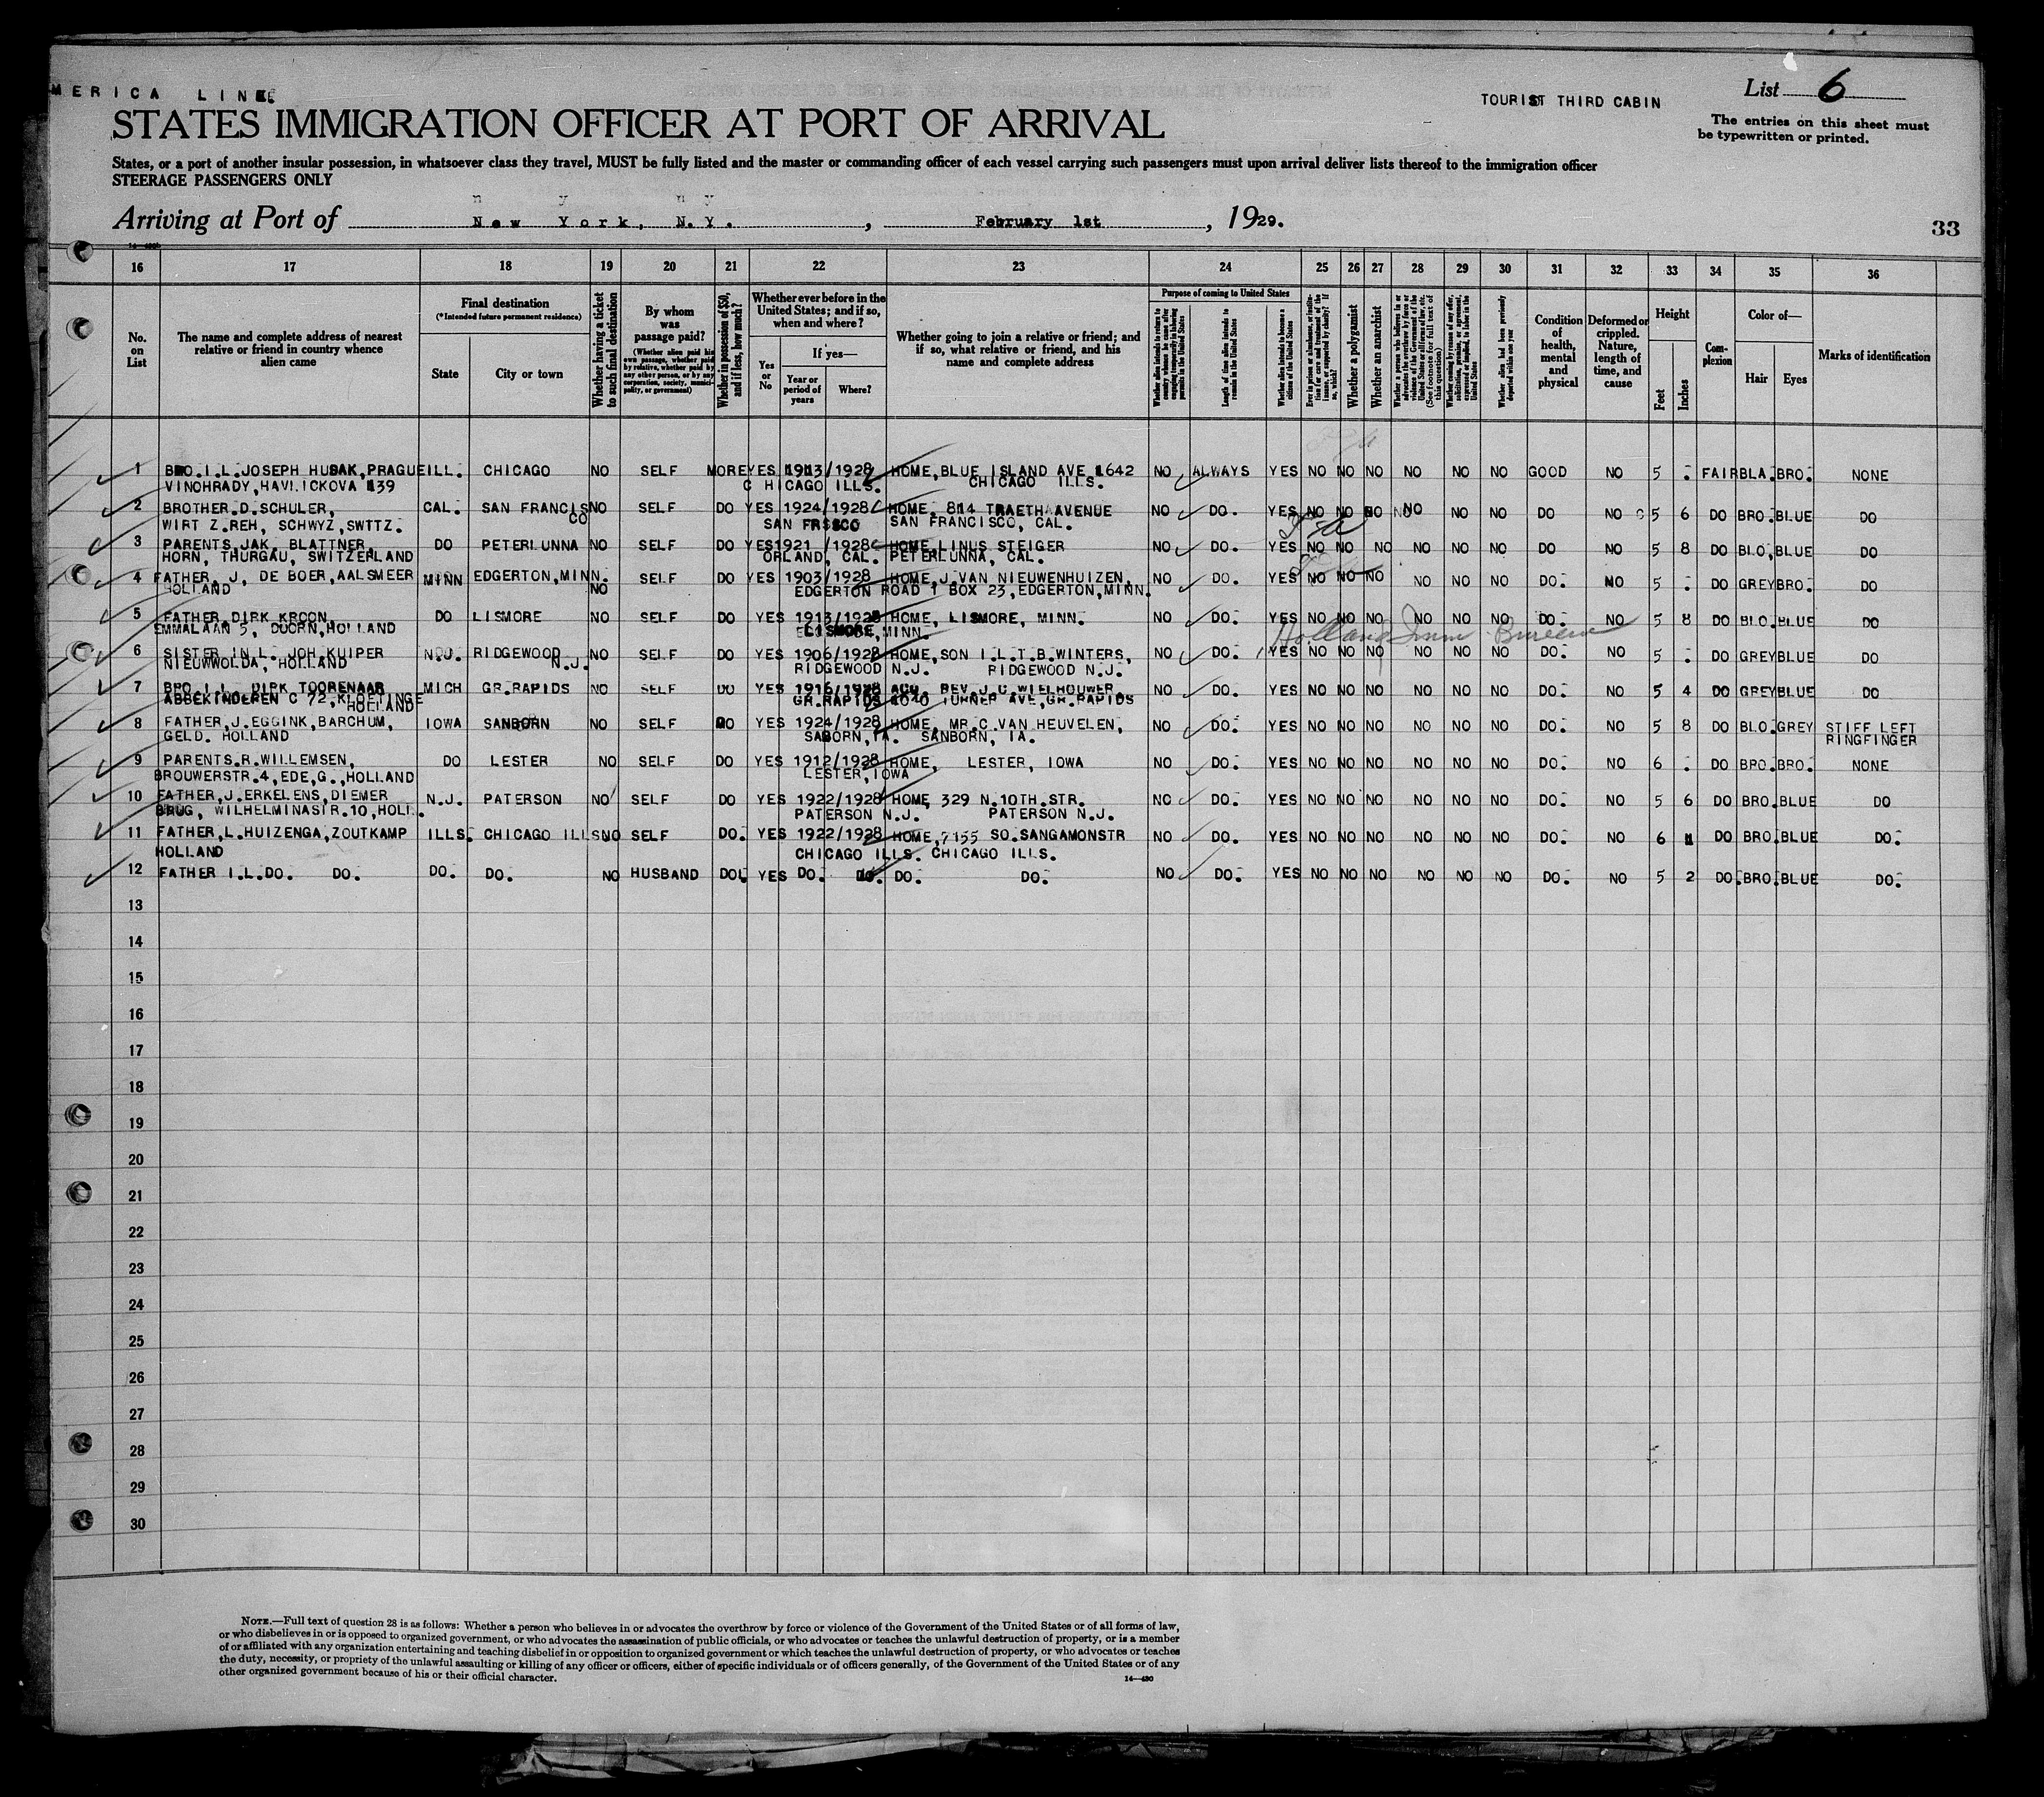 MERICA LINE
TOURIST THIRD CABIN
List 6
STATES IMMIGRATION OFFICER AT PORT OF ARRIVAL
The entries on this sheet must
be typewritten or printed.
States, or a port of another insular possession, in whatsoever class they travel, MUST be fully listed and the master or commanding officer of each vessel carrying such passengers must upon arrival deliver lists thereof to the immigration officer
STEERAGE PASSENGERS ONLY
Arriving at Port of New York, N.Y. , February 1st , 1929.
33
16 17 18 19 20 21 22 23 24 25 26 27 28 29 30 31 32 33 34 35 36
No. on List
The name and complete address of nearest relative or friend in country whence alien came
Final destination
(*Intended future permanent residence)
State
City or town
Whether having a ticket to such final destination
By whom was passage paid?
(Whether alien paid his own passage, whether paid by relative, whether paid by any other person, or by any corporation, society, municipality, or government)
Whether in possession of $50, and if less, how much?
Whether ever before in the United States; and if so, when and where?
Yes or No
If yes—
Year or period of years
Where?
Whether going to join a relative or friend; and if so, what relative or friend, and his name and complete address
Purpose of coming to United States
Length of time alien intends to remain in the United States
Whether alien intends to become a citizen of the United States
Whether a polygamist
Whether an anarchist
Condition of health, mental and physical
Deformed or crippled. Nature, length of time, and cause
Height
Feet
Inches
Complexion
Color of—
Hair
Eyes
Marks of identification
1 BRO.I.L.JOSEPH HUSAK,PRAGUE ILL. CHICAGO NO SELF MORE YES 1913/1928 HOME,BLUE ISLAND AVE 1642 NO ALWAYS YES NO NO NO NO NO NO GOOD NO 5 . FAIR BLA. BRO. NONE
VINOHRADY,HAVLICKOVA 139 CHICAGO ILLS. CHICAGO ILLS.
2 BROTHER.D.SCHULER, CAL. SAN FRANCISCO NO SELF DO YES 1924/1928 HOME, 814 TRAETH AVENUE NO DO. YES NO NO NO NO NO NO DO NO 5 6 DO BRO. BLUE DO
WIRT Z.REH, SCHWYZ,SWTTZ. SAN FRSSCO SAN FRANCISCO, CAL.
3 PARENTS,JAK. BLATTNER, DO PETERLUNNA NO SELF DO YES 1921 /1928 HOME LINUS STEIGER NO DO. YES NO NO NO NO NO NO DO NO 5 8 DO BLO, BLUE DO
HORN, THURGAU, SWITZERLAND ORLAND, CAL. PETERLUNNA, CAL.
4 FATHER, J, DE BOER,AALSMEER MINN EDGERTON,MINN. NO SELF DO YES 1903/1928 HOME,J.VAN NIEUWENHUIZEN, NO DO. YES NO NO NO NO NO NO DO. NO 5 . DO GREY BRO. DO
HOLLAND EDGERTON ROAD 1 BOX 23,EDGERTON,MINN.
5 FATHER,DIRK KROON, DO LISMORE NO SELF DO YES 1913/1928 HOME, LISMORE, MINN. NO DO. YES NO NO NO NO NO NO DO. NO 5 8 DO BLO. BLUE DO
EMMALAAN 5, DOORN,HOLLAND LISMORE,MINN.
Holland Imm Bureau
6 SISTER IN L. JOH KUIPER N.J. RIDGEWOOD N.J. NO SELF DO YES 1906/1928 HOME,SON I.L.T.B.WINTERS, NO DO. YES NO NO NO NO NO NO DO. NO 5 . DO GREY BLUE DO
NIEUWWOLDA, HOLLAND RIDGEWOOD N.J. RIDGEWOOD N.J.
7 BRO I.L. DIRK TOORENAAR MICH GR.RAPIDS NO SELF DO YES 1916/1928 REV.J.C WIELHOUWER NO DO. YES NO NO NO NO NO NO DO. NO 5 4 DO GREY BLUE DO
ABBEKINDEREN C 72,KLOETINGE HOLLAND GR.RAPIDS TURNER AVE,GR.RAPIDS
8 FATHER,J.EGGINK,BARCHUM, IOWA SANBORN NO SELF DO YES 1924/1928 HOME, MR.C.VAN HEUVELEN, NO DO. YES NO NO NO NO NO NO DO. NO 5 8 DO BLO. GREY STIFF LEFT
GELD. HOLLAND SABORN,IA. SANBORN, IA. RINGFINGER
9 PARENTS.R.WILLEMSEN, DO LESTER NO SELF DO YES 1912/1928 HOME, LESTER, IOWA NO DO. YES NO NO NO NO NO NO DO. NO 6 . DO BRO. BRO. NONE
BROUWERSTR.4,EDE,G.,HOLLAND LESTER,IOWA
10 FATHER,J.ERKELENS,DIEMER N.J. PATERSON NO SELF DO YES 1922/1928 HOME, 329 N.10TH.STR. NO DO. YES NO NO NO NO NO NO DO. NO 5 6 DO BRO. BLUE DO
BRUG, WILHELMINASTR.10,HOLL. PATERSON N.J. PATERSON N.J.
11 FATHER,L.HUIZENGA,ZOUTKAMP ILLS. CHICAGO ILLS NO SELF DO. YES 1922/1928 HOME,7155 SO.SANGAMONSTR NO DO. YES NO NO NO NO NO NO DO. NO 6 1 DO BRO. BLUE DO.
HOLLAND CHICAGO ILLS. CHICAGO ILLS.
12 FATHER I.L.DO. DO. DO. DO. NO HUSBAND DO. YES DO. DO. DO. DO. NO DO. YES NO NO NO NO NO NO DO. NO 5 2 DO. BRO. BLUE DO.
13
14
15
16
17
18
19
20
21
22
23
24
25
26
27
28
29
30
NOTE.—Full text of question 28 is as follows: Whether a person who believes in or advocates the overthrow by force or violence of the Government of the United States or of all forms of law,
or who disbelieves in or is opposed to organized government, or who advocates the assassination of public officials, or who advocates or teaches the unlawful destruction of property, or is a member
of or affiliated with any organization entertaining and teaching disbelief in or opposition to organized government or which teaches the unlawful destruction of property, or who advocates or teaches
the duty, necessity, or propriety of the unlawful assaulting or killing of any officer or officers, either of specific individuals or of officers generally, of the Government of the United States or of any
other organized government because of his or their official character.
14—430